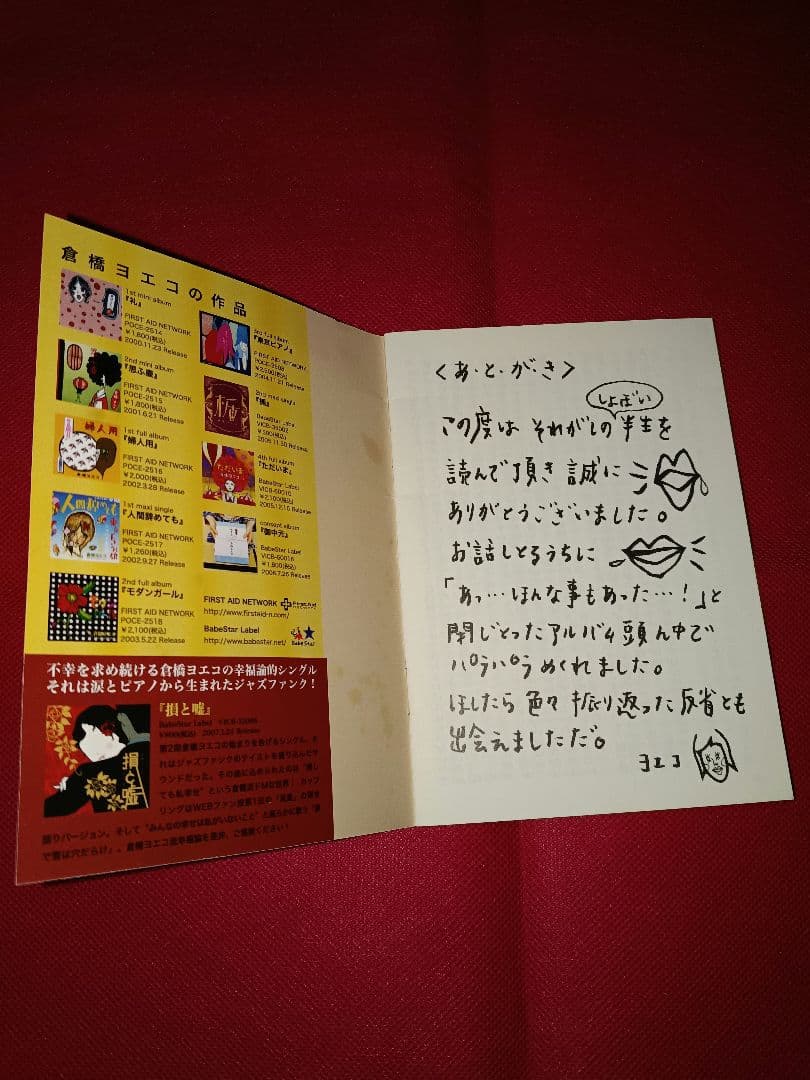 倉橋ヨエコの作品
1st mini album
『礼』
FIRST AID NETWORK
POCE-2514
￥1,600(税込)
2000.11.23 Release
2nd mini album
『思ふ壺』
FIRST AID NETWORK
POCE-2515
￥1,800(税込)
2001.6.21 Release
1st full album
『婦人用』
FIRST AID NETWORK
POCE-2516
￥2,000(税込)
2002.3.28 Release
1st maxi single
『人間辞めても』
FIRST AID NETWORK
POCE-2517
￥1,260(税込)
2002.9.27 Release
2nd full album
『モダンガール』
FIRST AID NETWORK
POCE-2518
￥2,100(税込)
2003.5.22 Release
3rd full album
『東京ピアノ』
FIRST AID NETWORK
2004.11.21 Release
2nd maxi single
『楯』
BabeStar Label
2005.11.30 Release
4th full album
『ただいま』
BabeStar Label
VICB-60010
￥2,100(税込)
2005.12.16 Release
concept album
『御中元』
BabeStar Label
VICB-60016
￥1,800(税込)
2006.7.26 Release
FIRST AID NETWORK
http://www.firstaid-n.com/
BabeStar Label
http://www.babestar.net/
BabeStar
不幸を求め続ける倉橋ヨエコの幸福論的シングル
それは涙とピアノから生まれたジャズファンク！
『損と嘘』
BabeStar Label
2007.1.24 Release
損と嘘
<あ・と・が・き>
しょぼい
この度は それがしの 半生を
読んで頂き 誠に
ありがとうございました。
お話しとるうちに
「あっ…ほんな事もあった…！」と
閉じとったアルバム頭ん中で
パラパラめくれました。
ほしたら 色々 振り返った 反省とも
出会えましただ。
ヨエコ